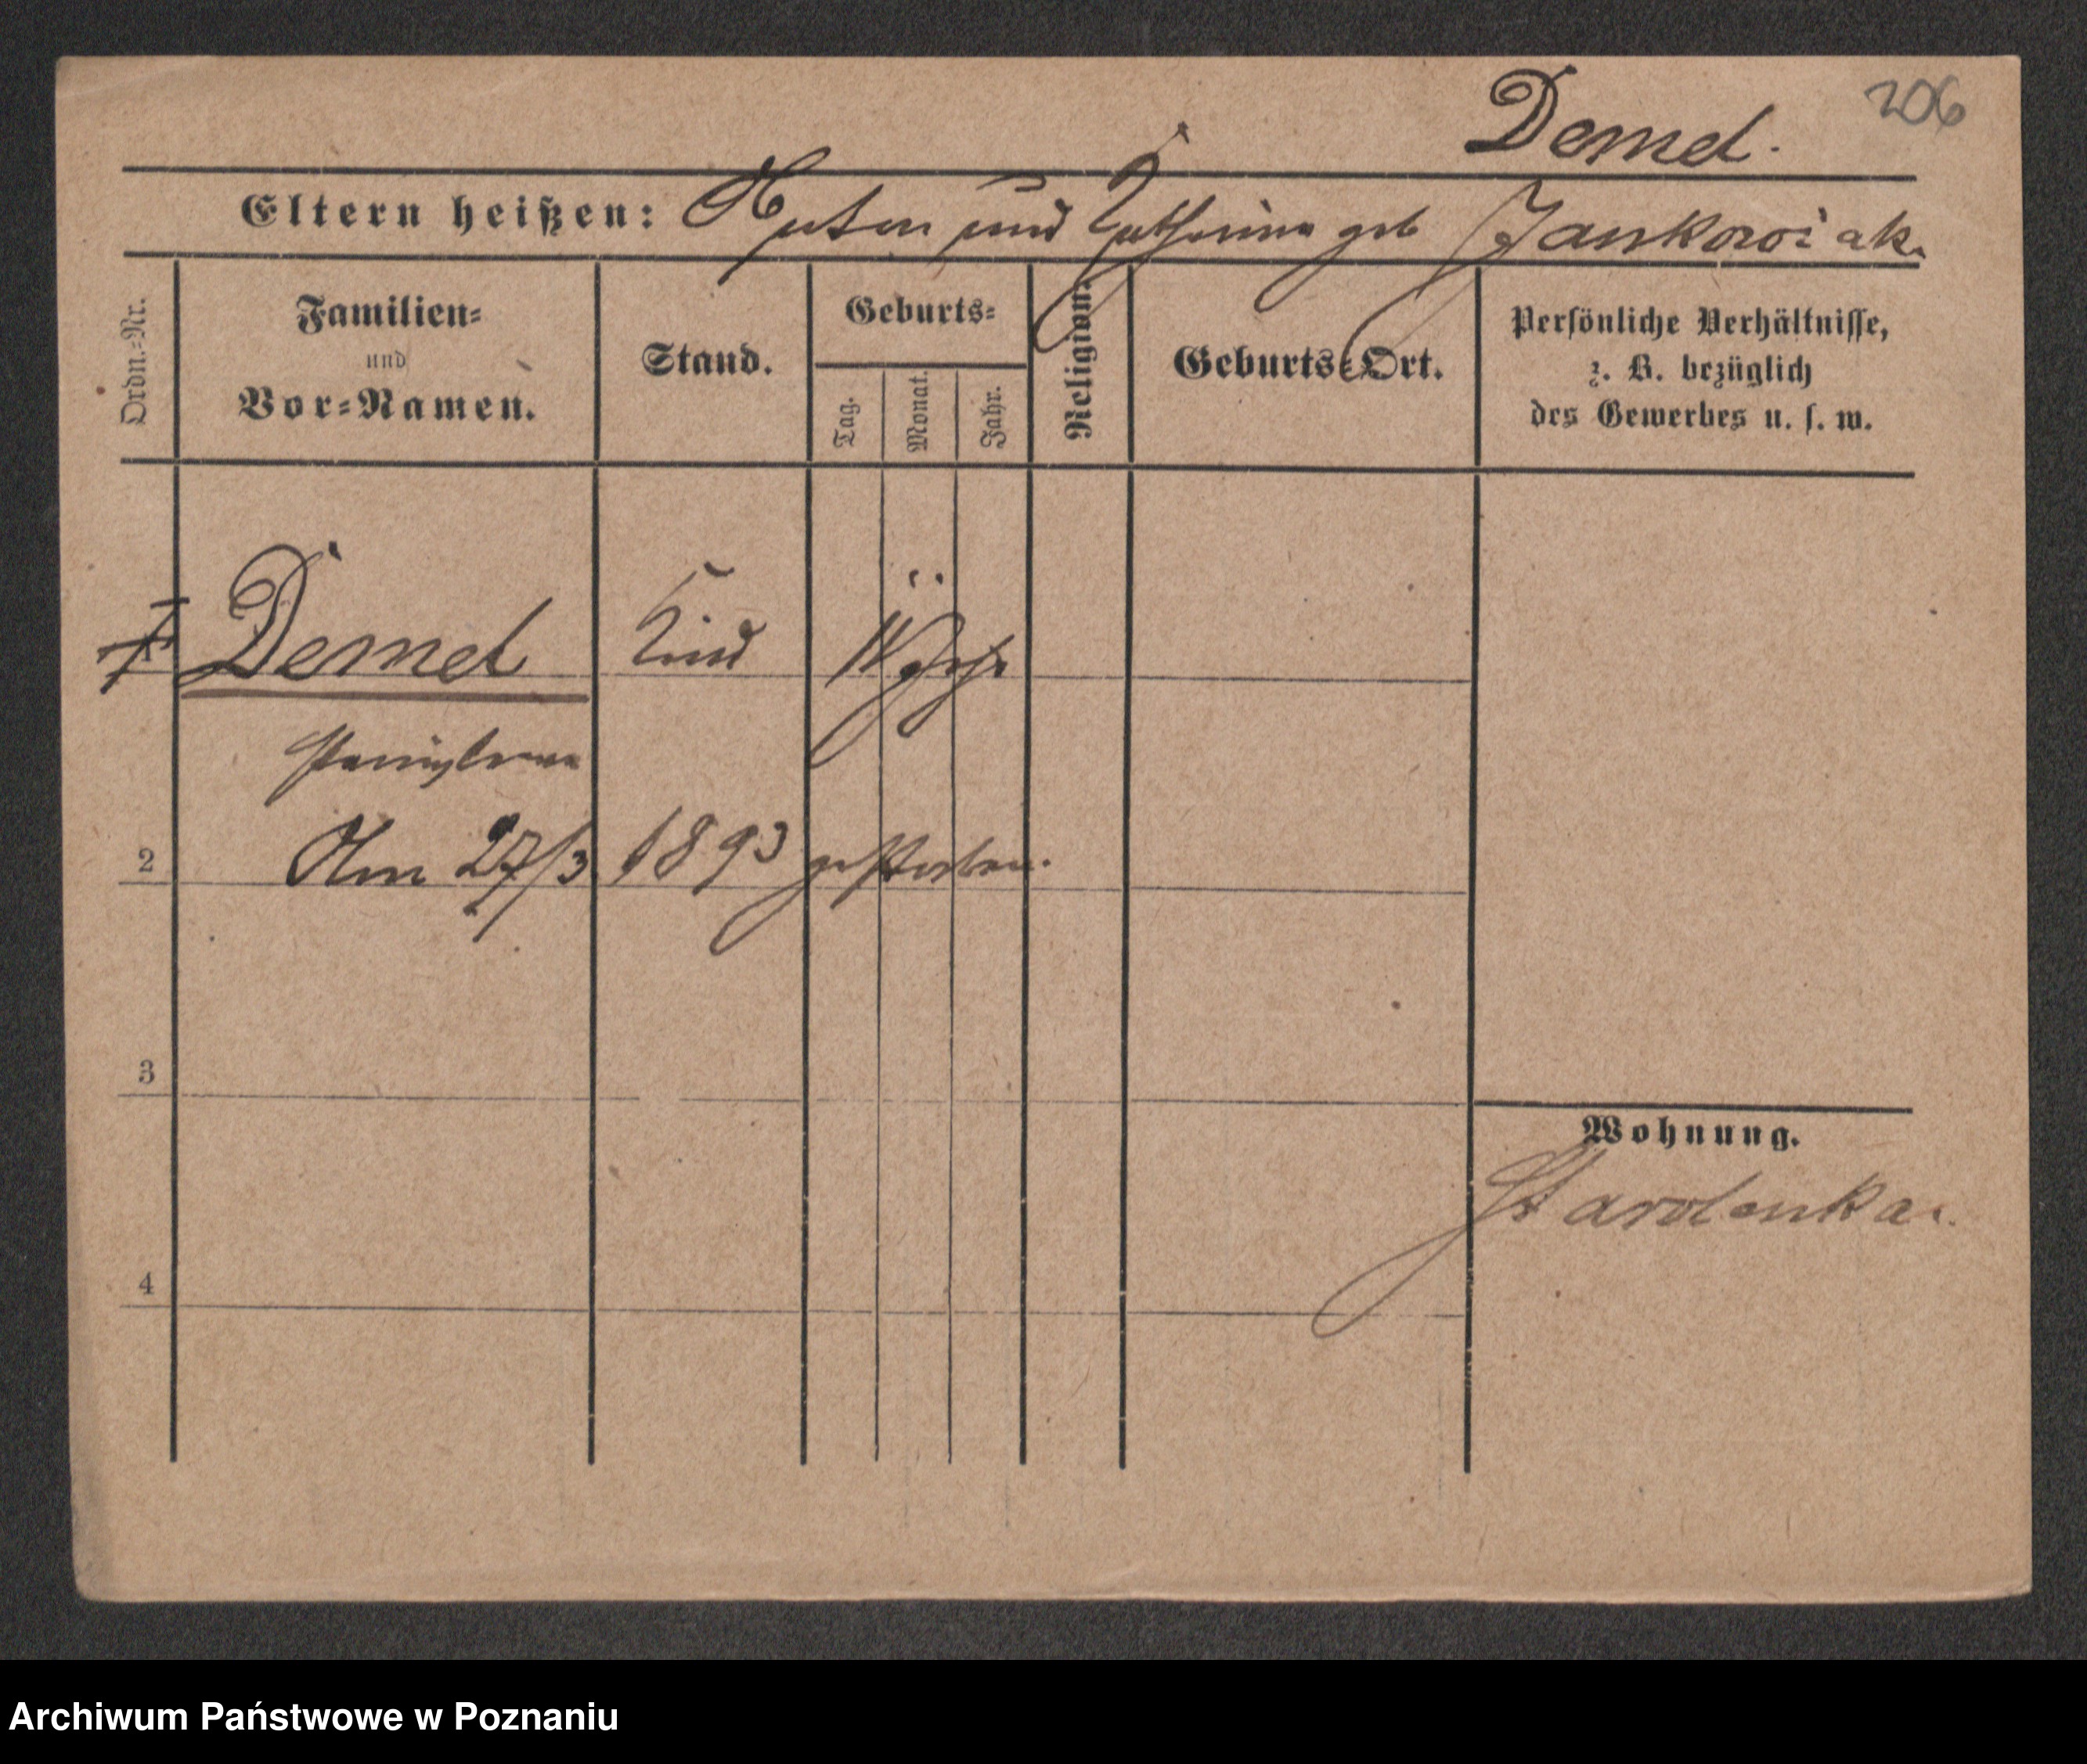 Demel.
206
Eltern heißen: und Catharina geb Jankowiak.
Ordn.-Nr.
Familien-
und
Vor-Namen.
Stand.
Geburts-
Tag.
Monat.
Jahr.
Religion.
Geburts-Ort.
Persönliche Verhältnisse,
z. B. bezüglich
des Gewerbes u. s. w.
1 Demel Kind
Stanislaus
2 Am 27/3 1893 gestorben.
3
Wohnung.
Starolenka.
4
Archiwum Państwowe w Poznaniu